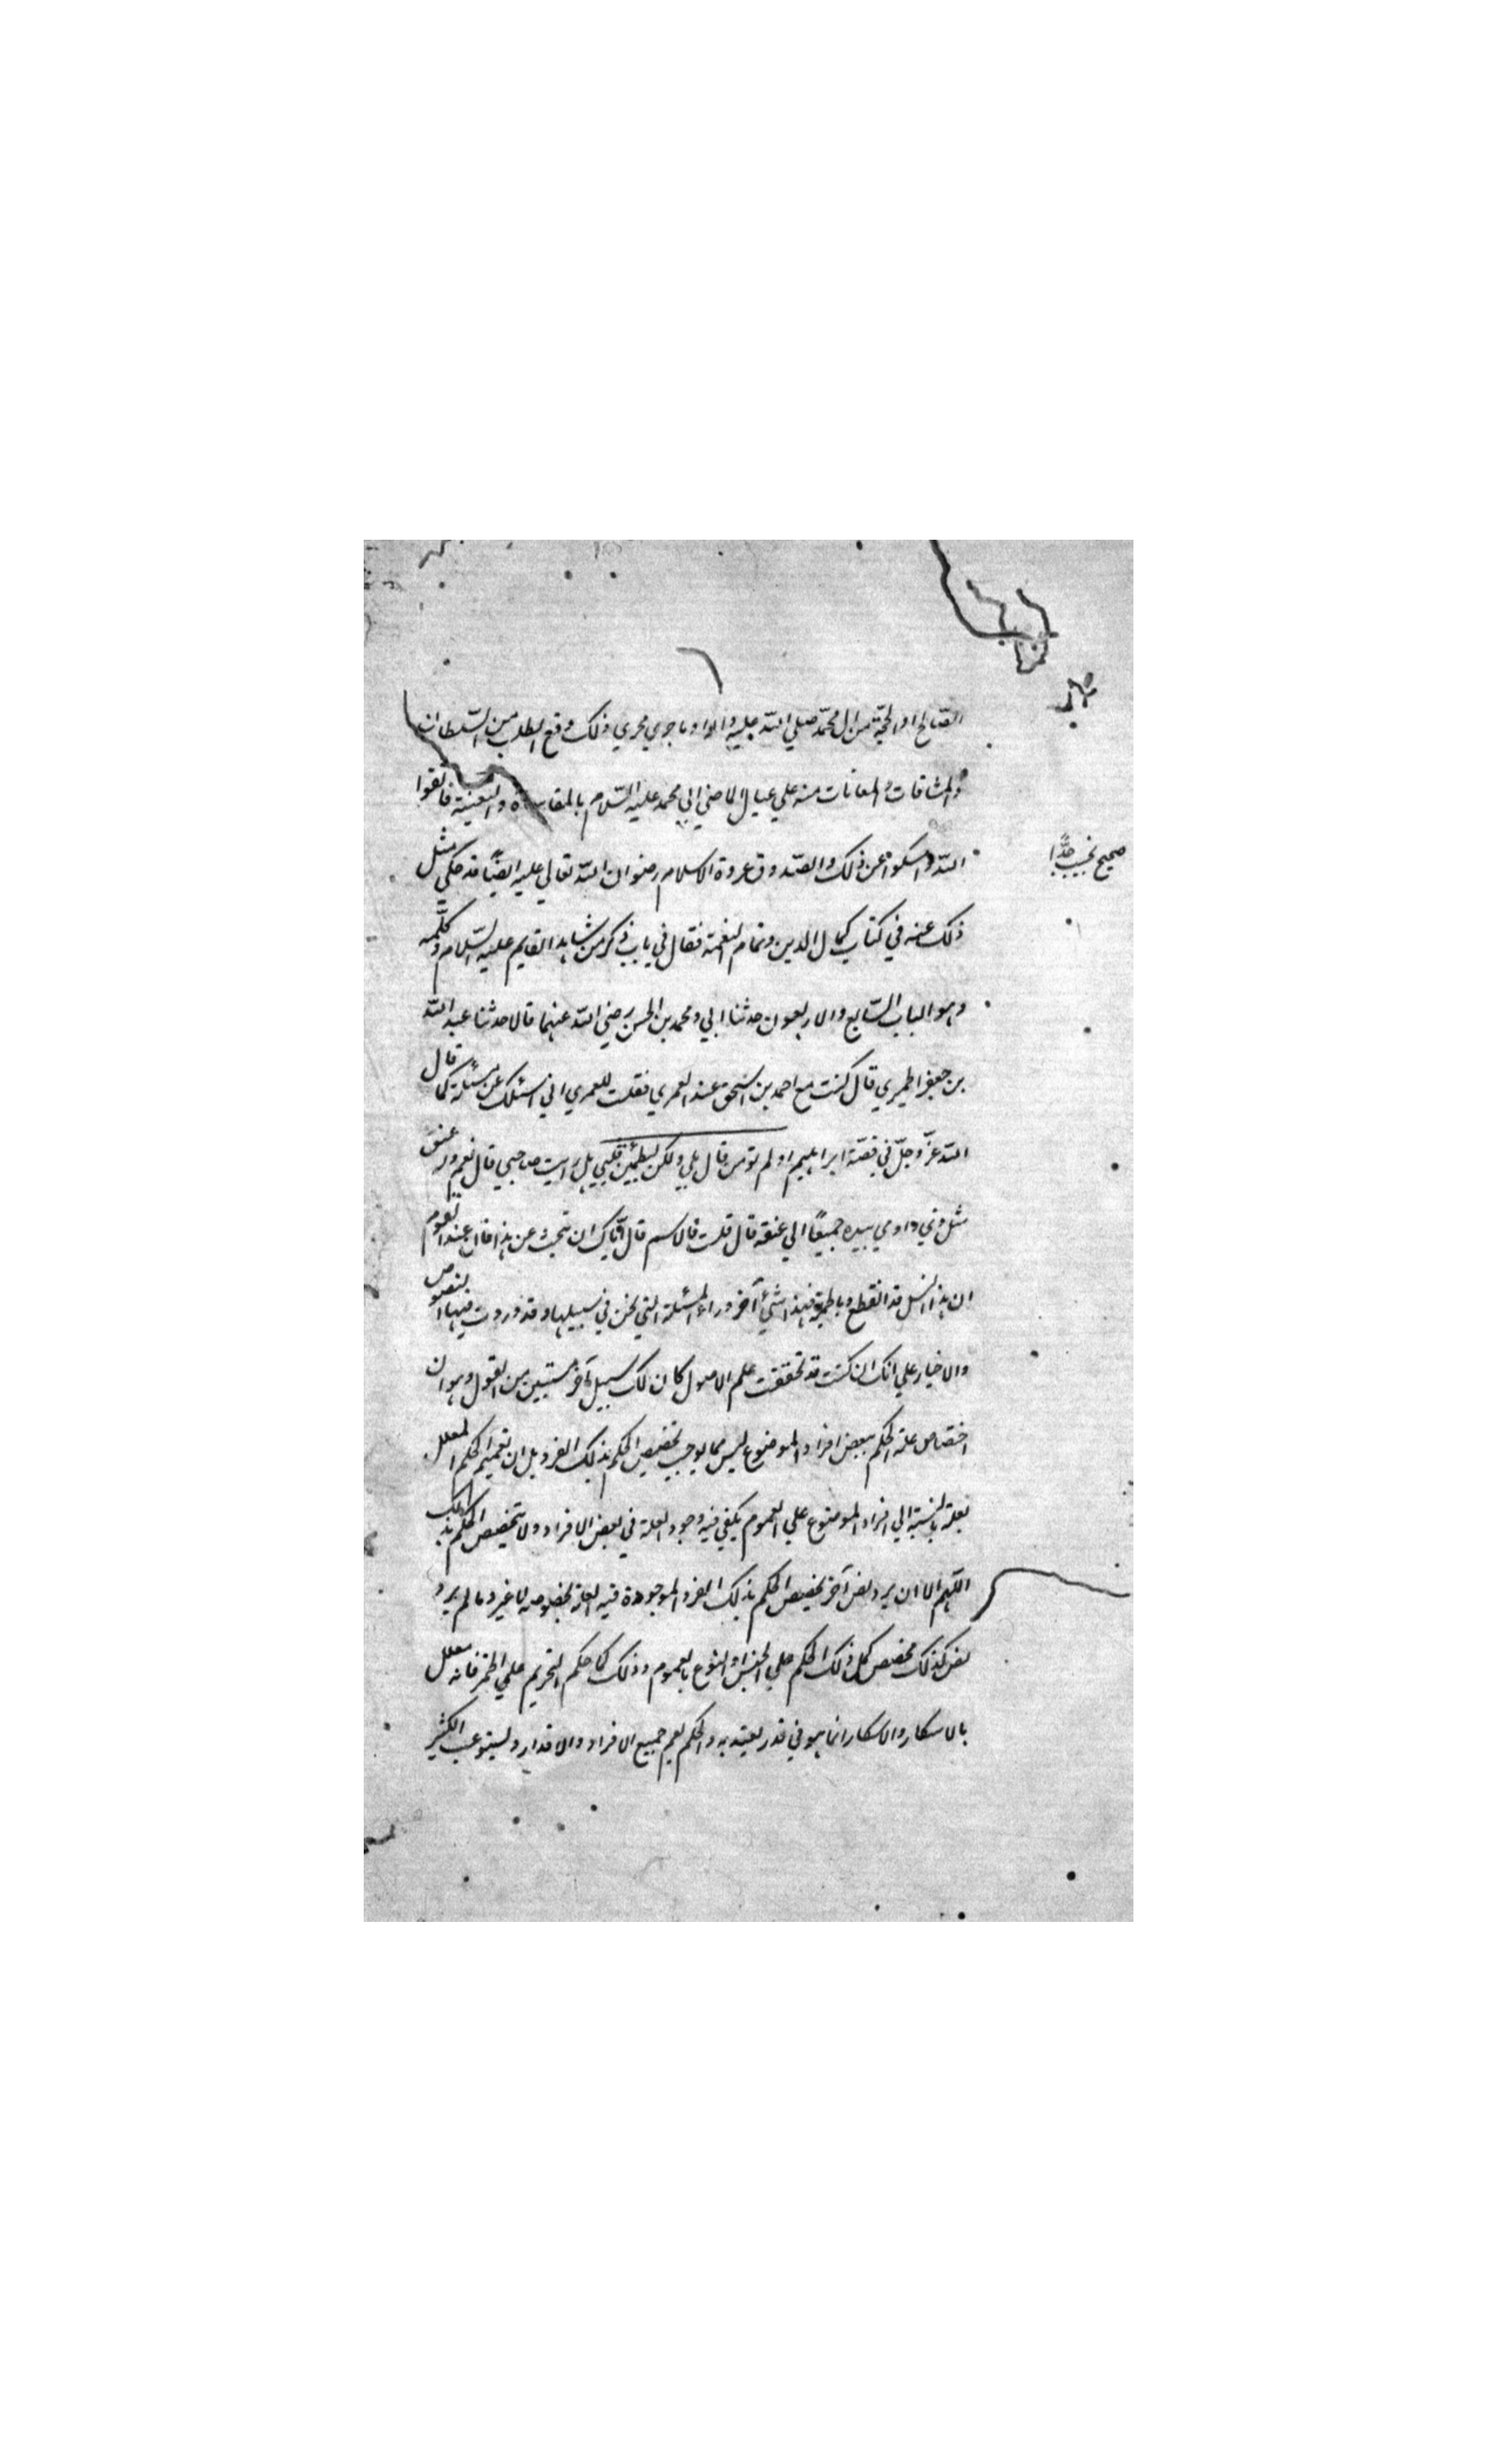 الصالح او الحجة من ال محمد صلي الله عليه واله او ما جري مجري ذلك وقع الطلب من السلطان
والمشاقات والمعانات منه علي عيال الماضي ابي محمد عليه السلام بالمقاساة والتعنية فاتقوا
الله وامسكوا عن ذلك والصدوق عروة الاسلام رضوان الله تعالي عليه ايضًا قد حكي مثل
صحيح نجيب جدًّا
ذلك عنه في كتاب كمال الدين وتمام النعمة فقال في باب ذكر من شاهد القايم عليه السلام وكلّمه
وهو الباب السّابع والاربعون حدثنا ابي ومحمد بن الحسن رضي الله عنهما قالا حدثنا عبد الله
بن جعفر الحميري قال كنت مع احمد بن اسحق عند العمري فقلت للعمري اني اسئلك عن مسئلة كما قال
الله عزّ وجلّ في قصّة ابراهيم اولم تؤمن قال بلي ولكن ليطمئن قلبي هل رايت صاحبي قال نعم وله عنق
مثل ذي واومي بيده جميعًا الي عنقه قال قلت فالاسم قال ايّاك ان تبحث عن هذا فان عند القوم
ان هذا النسل قد انقطع وبالجملة فهذا شيء آخر وراء المسئلة التي نحن في سبيلها وقد وردت فيها النصوص
والاخبار علي انك ان كنت قد تحققت علم الاصول كان لك سبيل آخر مستبين من القول وهو ان
اختصاص علة الحكم ببعض افراد الموضوع ليس مما يوجب تخصيص الحكم بذلك الفرد بل ان تعميم الحكم المعلل
بعلة بالنسبة الي افراد الموضوع علي العموم يكفي فيه وجود العلة في بعض الافراد ولا تخصيص الحكم بذلك
اللّهم الا ان يرد نص آخر بتخصيص الحكم بذلك الفرد الموجودة فيه العلة بخصوصه لا غير وما لم يرد
نص كذلك مخصص كل ذلك الحكم علي الجنس او النوع بالعموم وذلك كما حكم التحريم علي الخمر فانه معلل
بالاسكار والاسكار انما هو في قدر يعتد به والحكم يعم جميع الافراد والاقدار ويستوعب الكثير